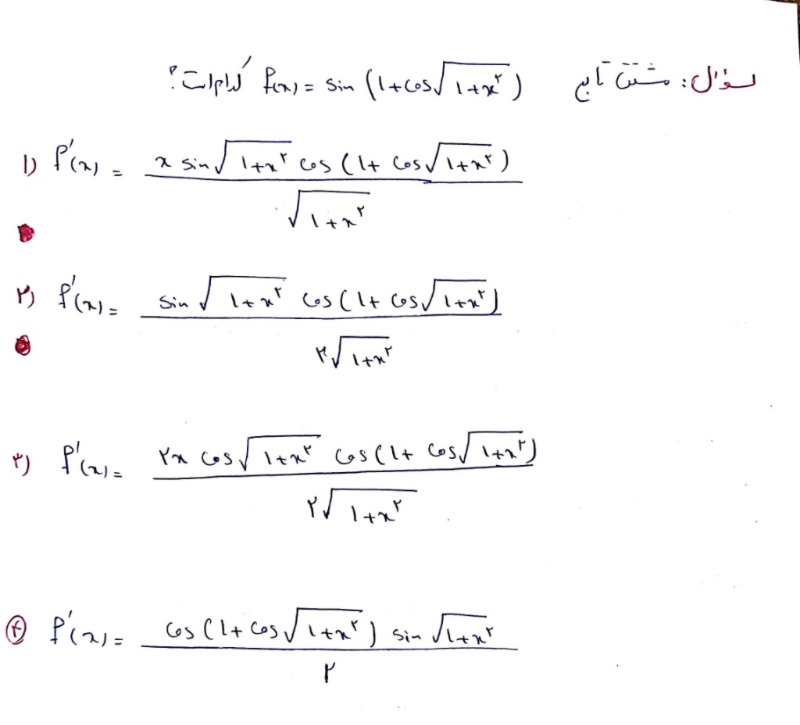 سؤال: مشتق تابع f(x) = sin (1+cos√(1+x²)) کدام است؟
۱) f′(x) = x sin√(1+x²) cos(1+cos√(1+x²)) / √(1+x²)
۲) f′(x) = sin√(1+x²) cos(1+cos√(1+x²)) / ۲√(1+x²)
۳) f′(x) = ۲x cos√(1+x²) cos(1+cos√(1+x²)) / ۲√(1+x²)
۴ f′(x) = cos(1+cos√(1+x²)) sin√(1+x²) / ۲